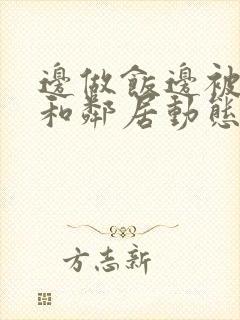 邊做飯邊被
和鄰居動態
方志新